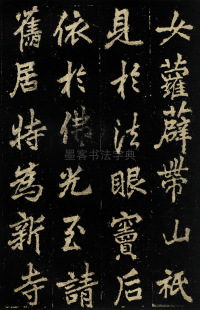 女蘿薜帶山祇
見於法眼竇后
依於佛光至請
舊居特為新寺
墨客书法字典